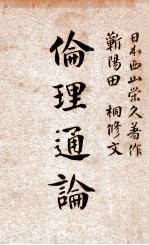 日本西山荣久著作
蕲陽田桐修文
倫理通論